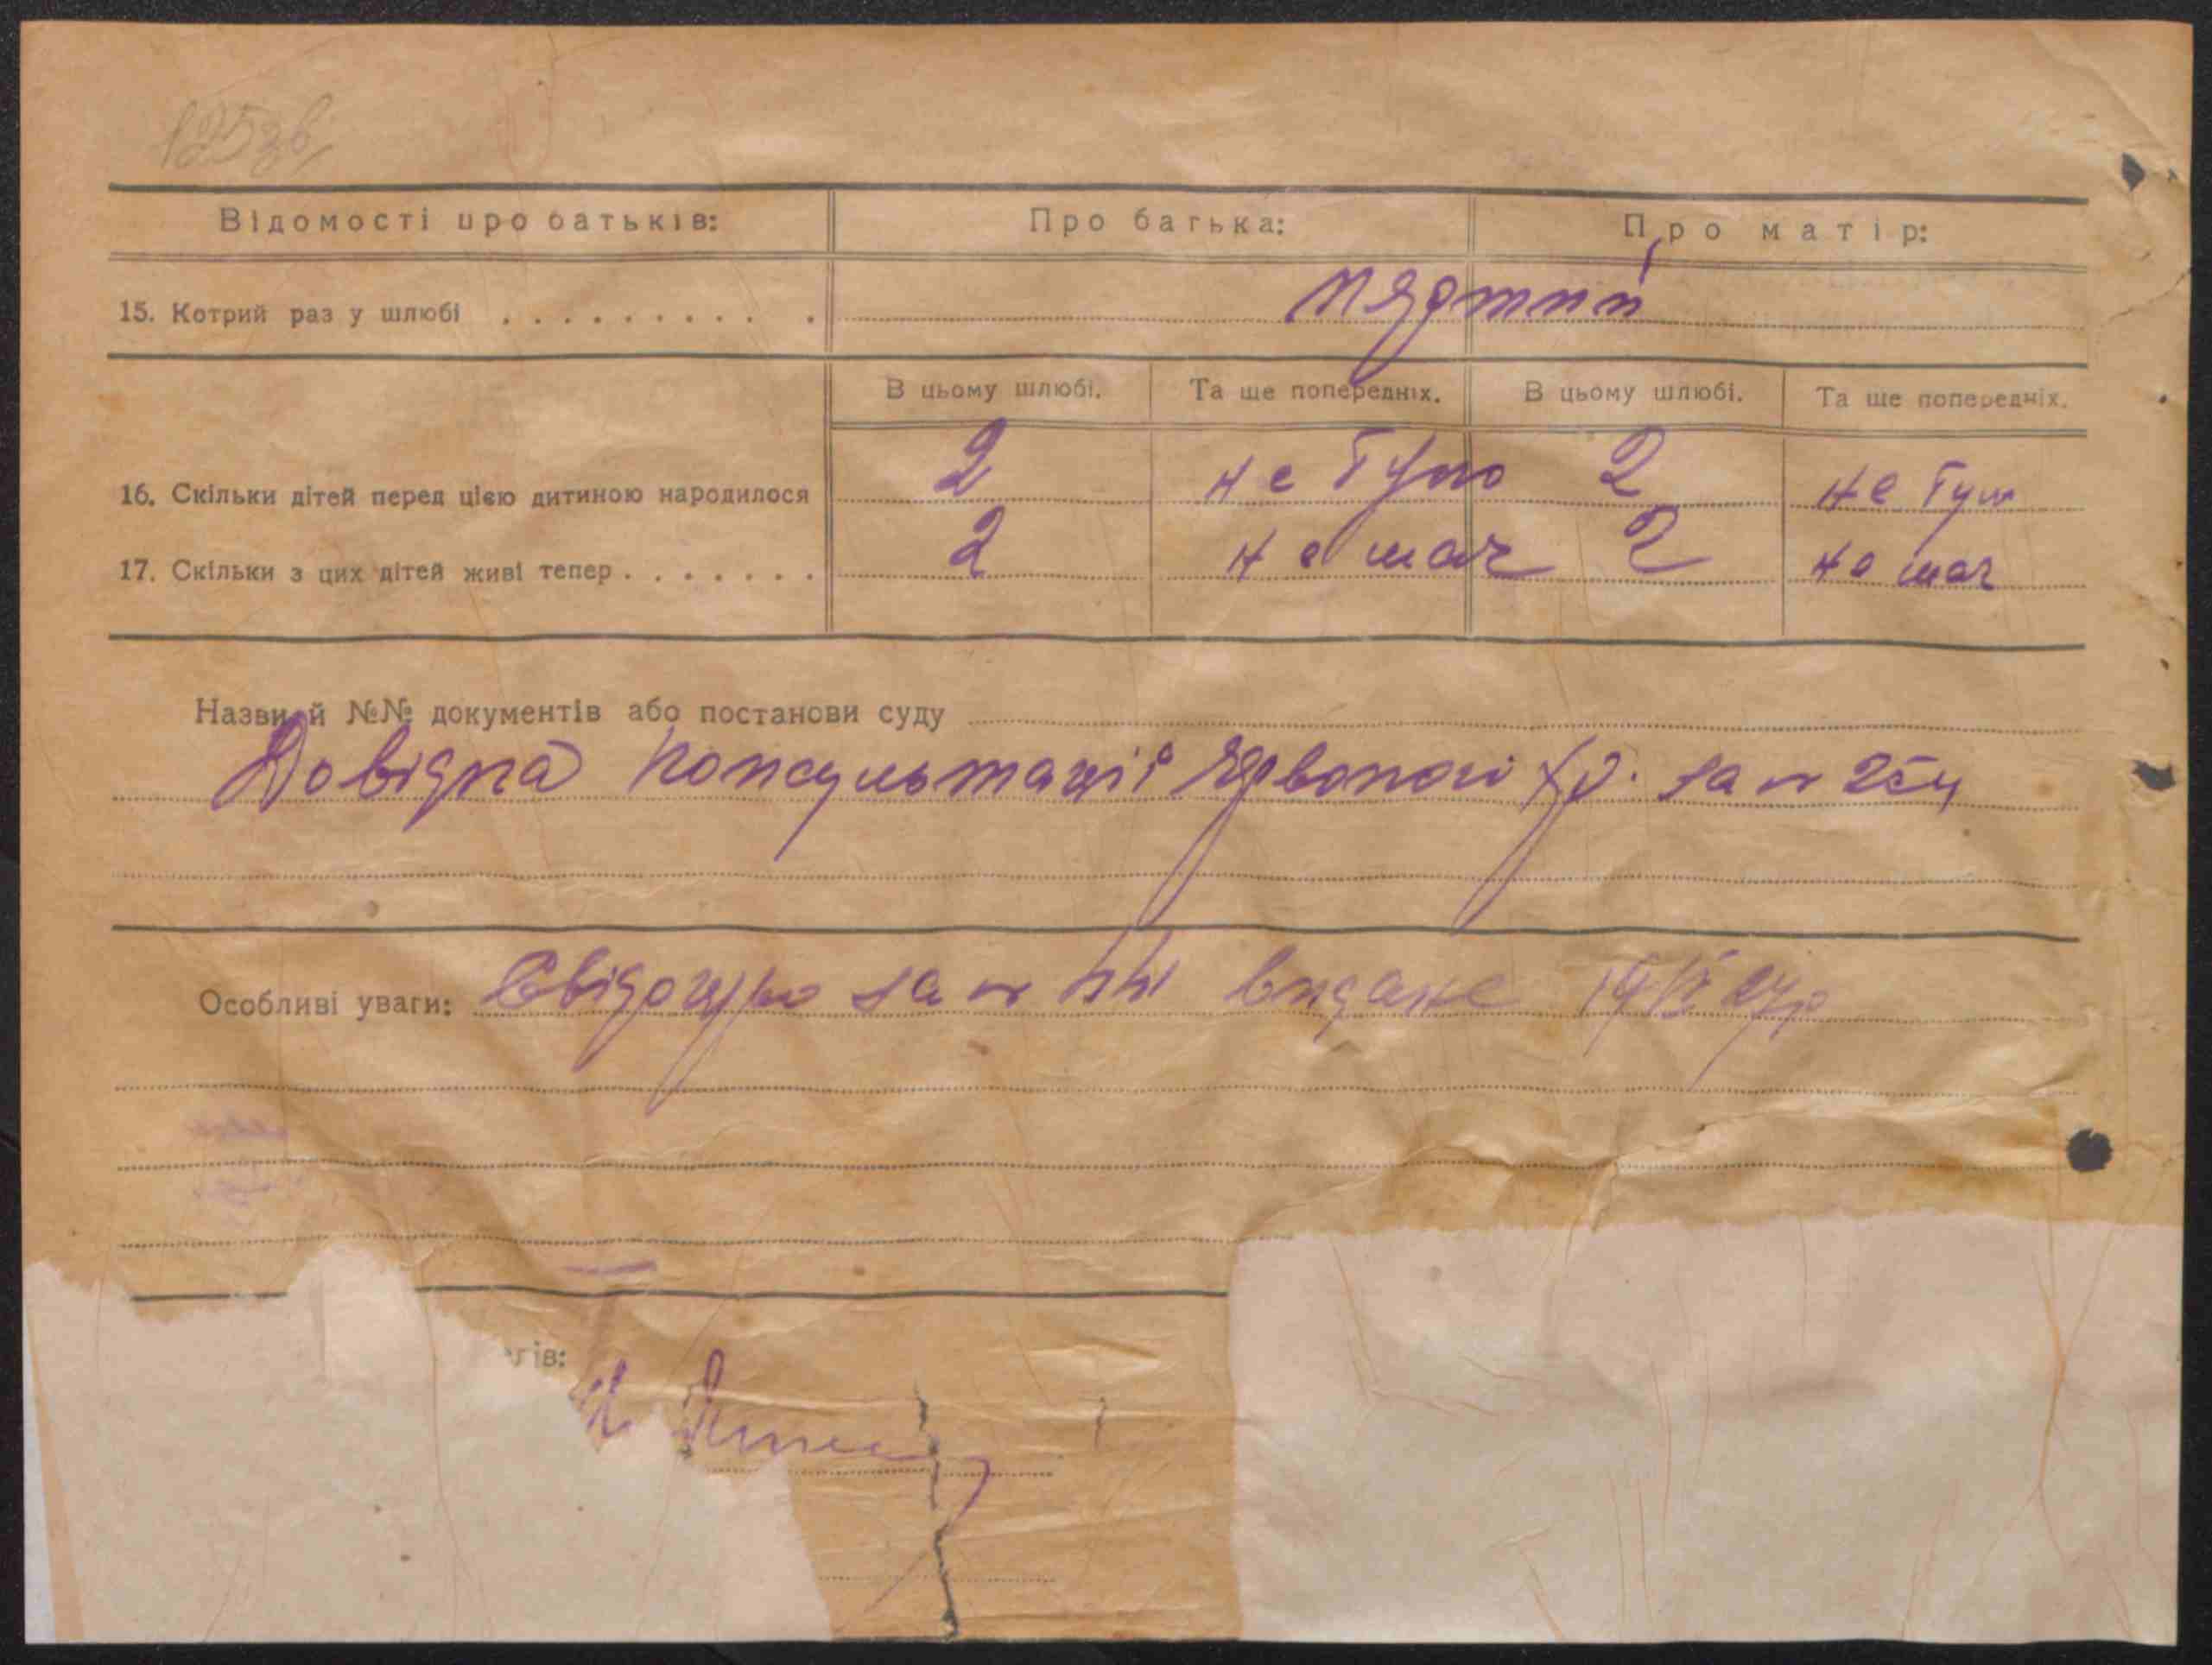 125зв
Відомості про батьків:
Про батька:
Про матір:
15. Котрий раз у шлюбі . . . . . . . . . .
В цьому шлюбі.
Та ще попередніх.
В цьому шлюбі.
Та ще попередніх.
16. Скільки дітей перед цією дитиною народилося
2
не було
2
не було
17. Скільки з цих дітей живі тепер . . . . . . .
2
немає
2
немає
Назви й №№ документів або постанови суду
Довідка Консультації за № 254
Особливі уваги:
видане